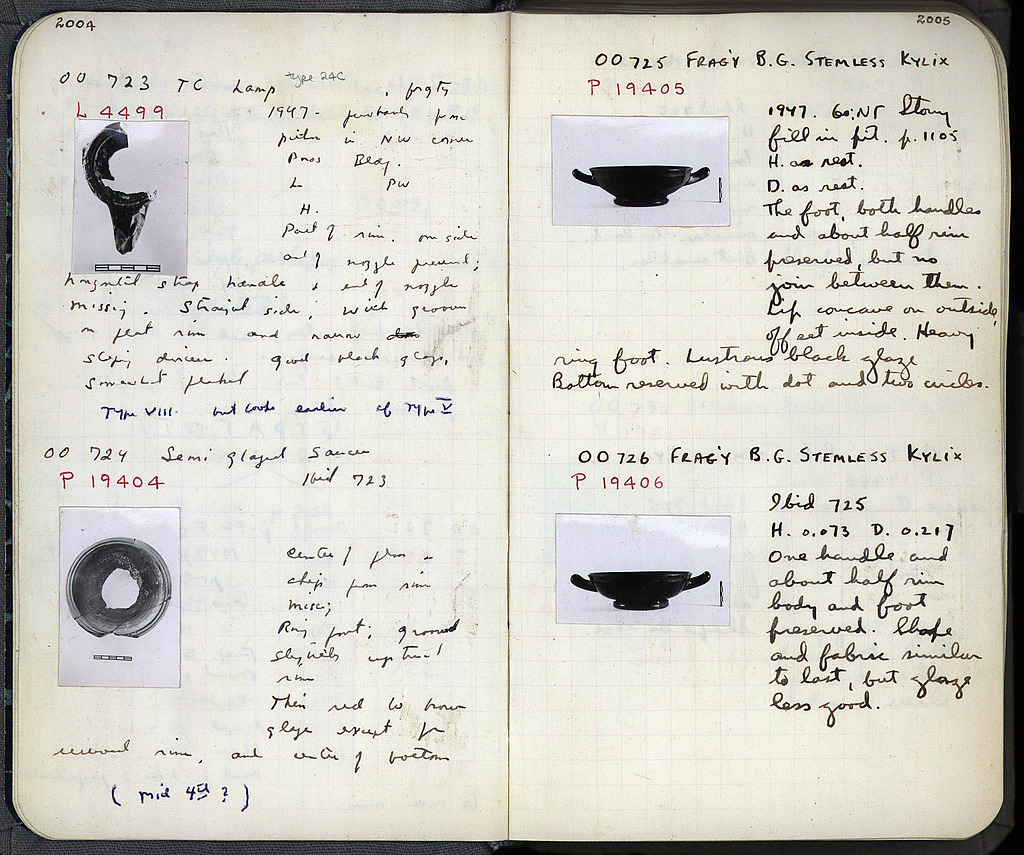 2004
OO 723 TC Lamp type 24C , frgts
L 4499
1947 - from
pithos in NW corner
Poros Bldg.
L PW
H.
Part of rim, one side
and of nozzle preserved;
horizontal strap handle & end of nozzle
missing. Straight side, with groove
on flat rim and narrow
sloping . Good black glaze,
somewhat peeled
Type VIII. but looks earlier cf Type V
OO 724 Semi glazed Saucer
P 19404
Ibid 723
Center of floor &
chips from rim
missing
Ring foot; grooved
slightly upturned
rim
Thin red to brown
glaze except for
reserved rim, and center of bottom
( mid 4th ? )
2005
OO 725 FRAG'Y B.G. STEMLESS KYLIX
P 19405
1947. 60:NΓ Stony
fill in pit. p. 1105
H. as rest.
D. as rest.
The foot, both handles
and about half rim
preserved, but no
join between them.
Lip concave on outside,
offset inside. Heavy
ring foot. Lustrous black glaze
Bottom reserved with dot and two circles.
OO 726 FRAG'Y B.G. STEMLESS KYLIX
P 19406
Ibid 725
H. 0.073 D. 0.217
One handle and
about half rim
body and foot
preserved. Shape
and fabric similar
to last, but glaze
less good.